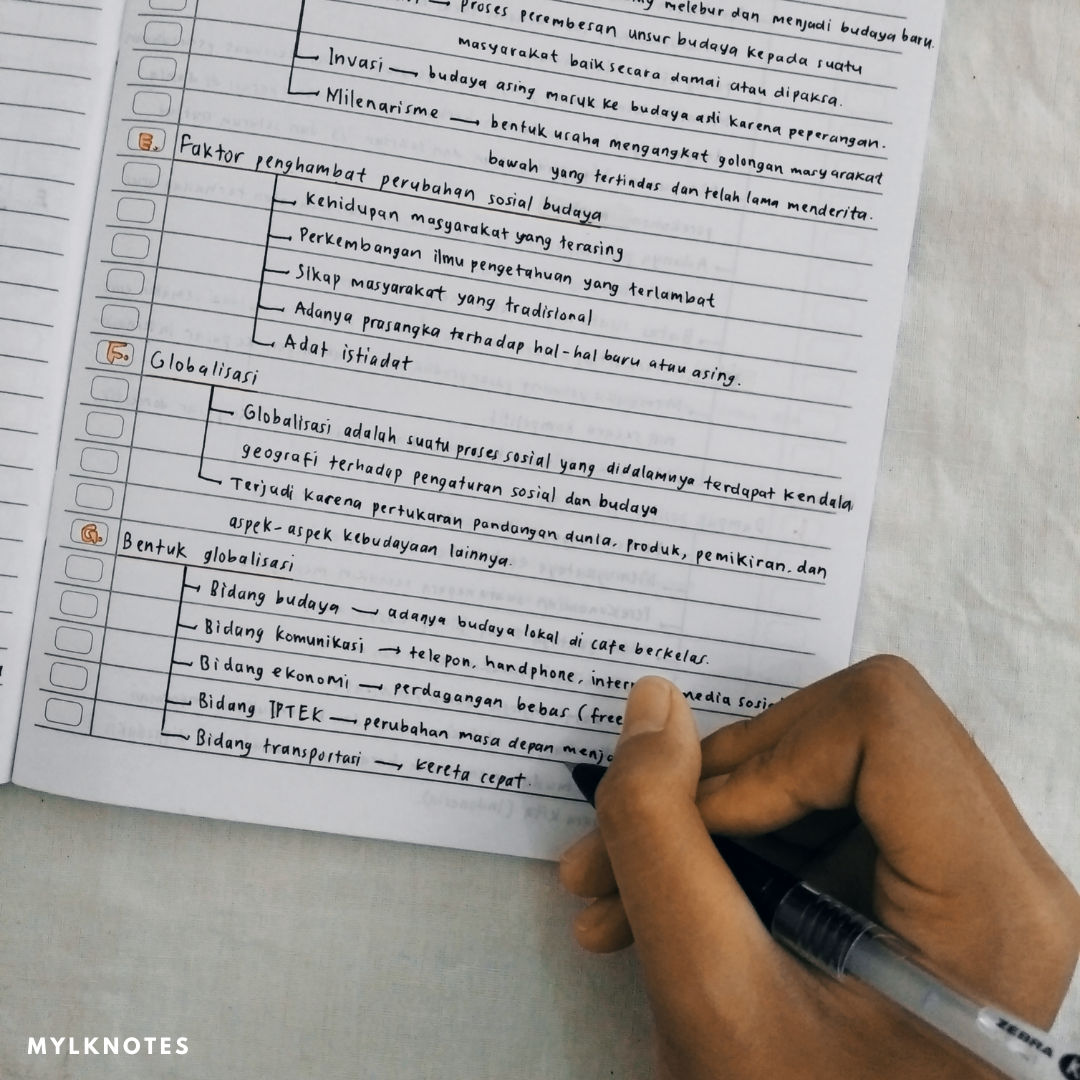 melebur dan menjadi budaya baru.
proses perembesan unsur budaya kepada suatu
masyarakat baik secara damai atau dipaksa.
Invasi → budaya asing masuk ke budaya asli karena peperangan.
Milenarisme → bentuk usaha mengangkat golongan masyarakat
bawah yang tertindas dan telah lama menderita.
E. Faktor penghambat perubahan sosial budaya
Kehidupan masyarakat yang terasing
Perkembangan ilmu pengetahuan yang terlambat
Sikap masyarakat yang tradisional
Adanya prasangka terhadap hal-hal baru atau asing.
Adat istiadat
F. Globalisasi
Globalisasi adalah suatu proses sosial yang didalamnya terdapat kendala
geografi terhadap pengaturan sosial dan budaya
Terjadi karena pertukaran pandangan dunia, produk, pemikiran, dan
aspek-aspek kebudayaan lainnya.
G. Bentuk globalisasi
Bidang budaya → adanya budaya lokal di cafe berkelas.
Bidang komunikasi → telepon, handphone, media
Bidang ekonomi → perdagangan bebas (free
Bidang IPTEK → perubahan masa depan
Bidang transportasi → kereta cepat.
ZEBRA
MYLKNOTES